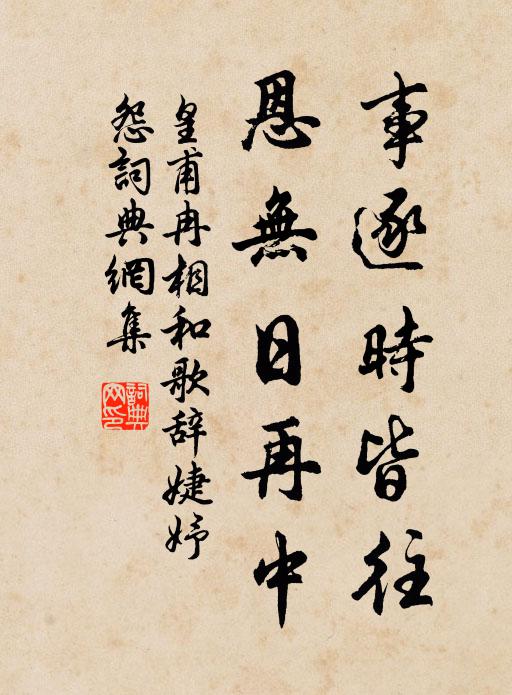 事逐時皆往
恩無日再中
皇甫冉相和歌辞婕妤
怨詞典網集
詞典网印